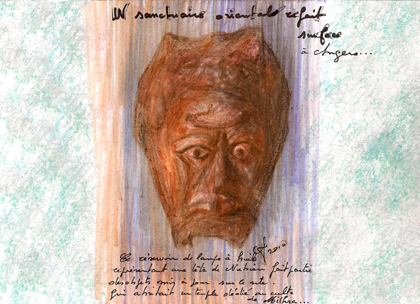 UN sanctuaire oriental refait
surface
à Angers...
Ce réservoir de lampe à huile
représentant une tête de Nubien fait partie
des objets mis à jour sur ce site
qui abritait un temple dédié au culte
de Mithra...